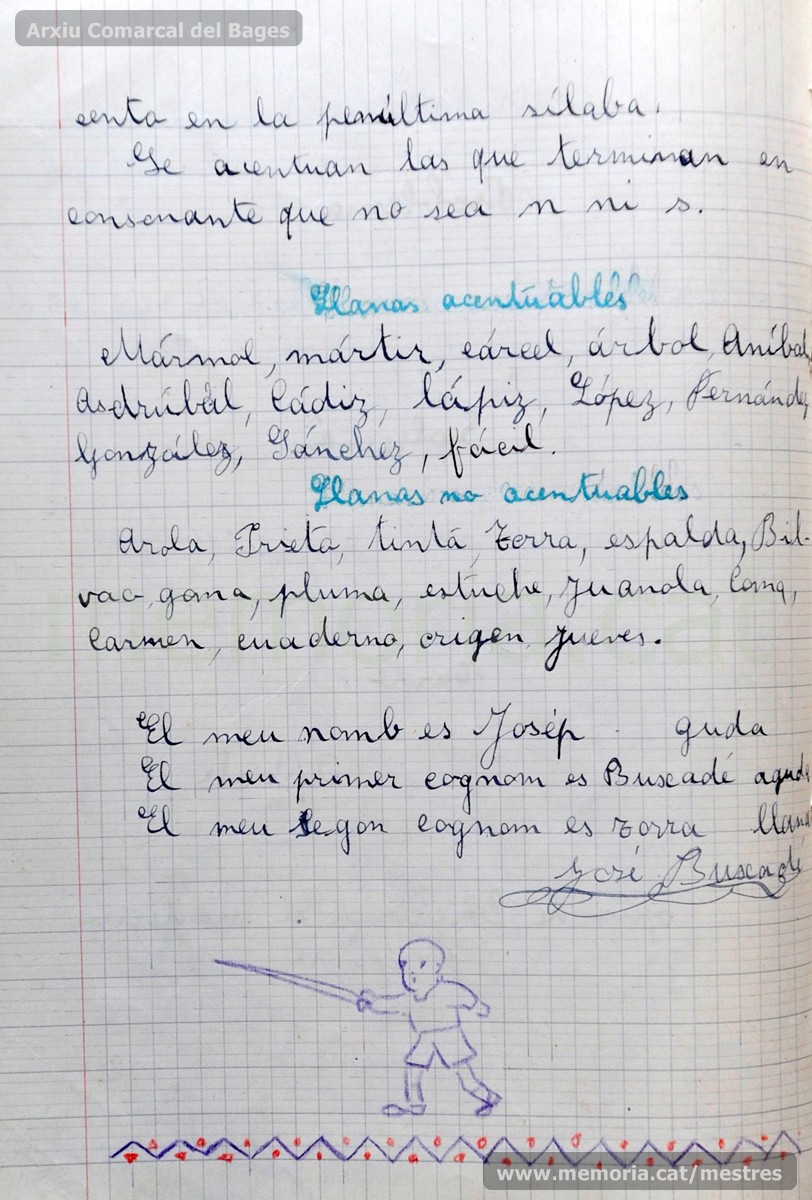 Arxiu Comarcal del Bages
centa en la penúltima sílaba.
Se acentuan las que terminan en
consonante que no sea n ni s.
Llanas acentuables
Mármol, mártir, cárcel, árbol, Aníbal,
Asdrúbal, Cádiz, lápiz, López, Fernández,
González, Sánchez, fácil.
Llanas no acentuables
Arola, Prieto, tinta, Zorra, espalda, Bil-
vao, goma, pluma, estuche, Juanola, Coma,
Carmen, cuaderno, origen, jueves.
El meu nomb es Josép guda
El meu primer cognom es Buxadé aguda
El meu segon cognom es zorra llana
José Buxadé
www.memoria.cat/mestres